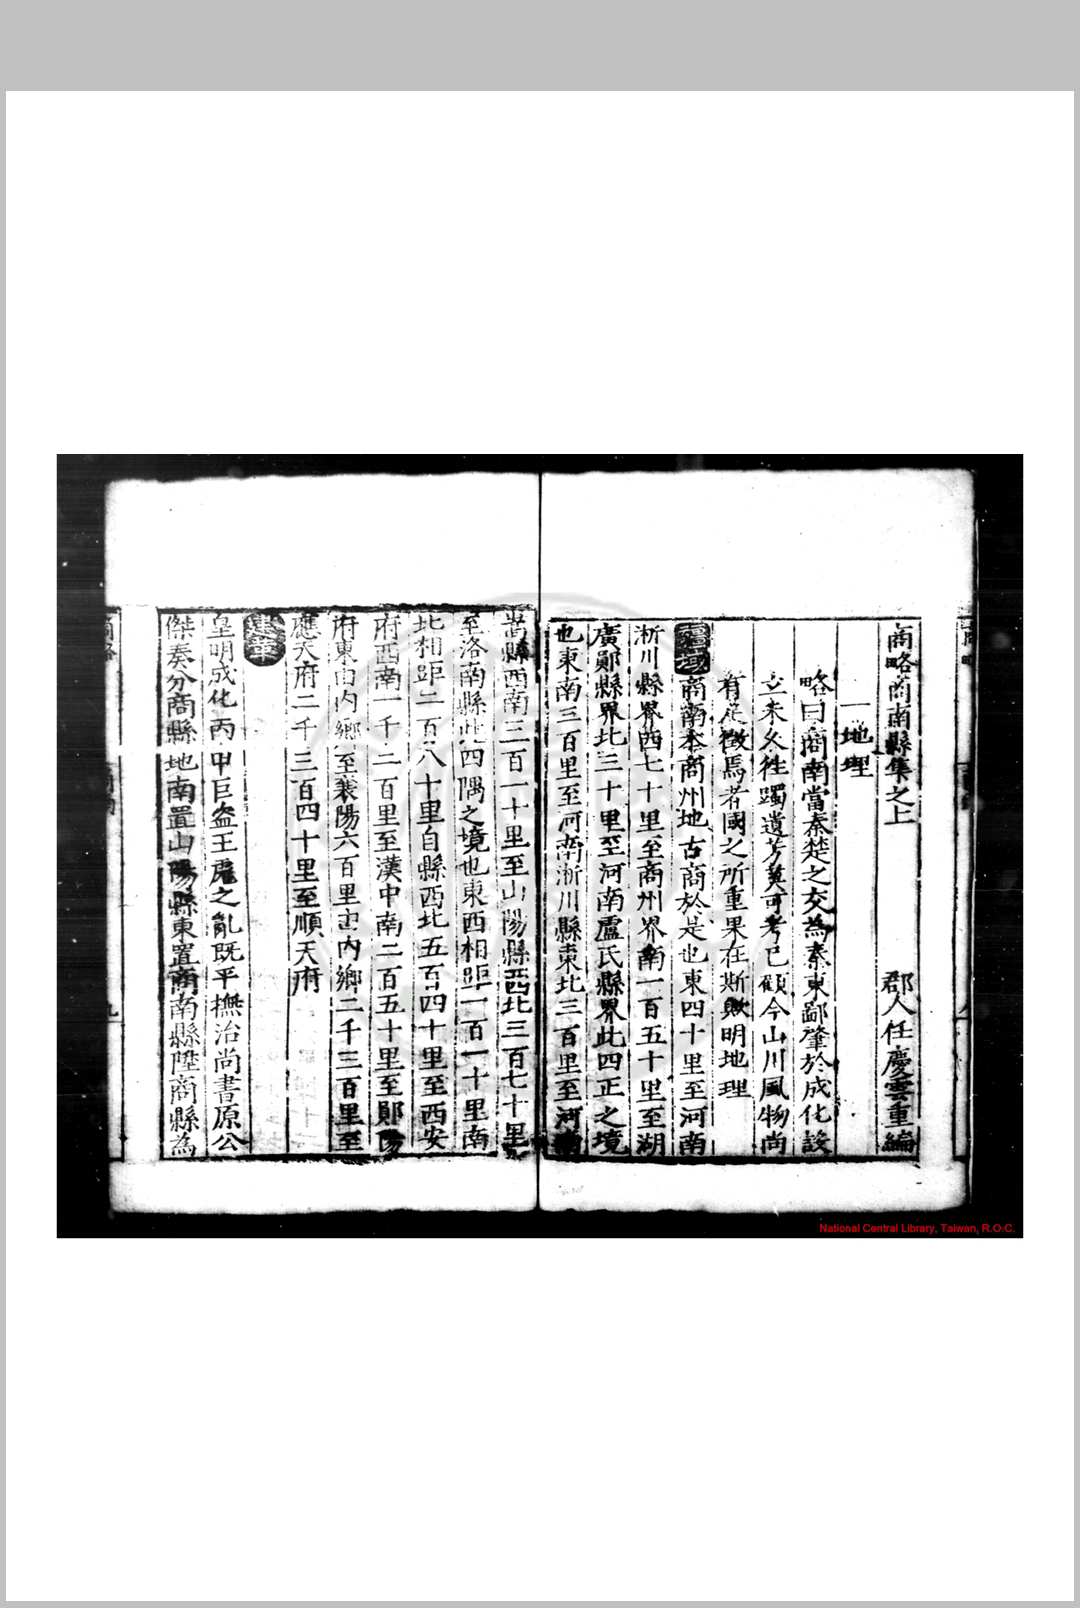 商略商南縣集之上
郡人任慶雲重編
一地理
略曰商南當秦楚之交為秦東鄙肇於成化設
立未久往躅遺芳莫可考已顧今山川風物尚
有足徵焉者國之所重果在斯歟明地理
疆域商南本商州地古商於是也東四十里至河南
淅川縣界西七十里至商州界南一百五十里至湖
廣鄖縣界北三十里至河南盧氏縣界此四正之境
也東南三百里至河南淅川縣東北三百里至河南
嵩縣西南三百一十里至山陽縣西北三百七十里
至洛南縣此四隅之境也東西相距一百一十里南
北相距二百八十里自縣西北五百四十里至西安
府西南一千二百里至漢中南二百五十里至鄖陽
府東由內鄉至襄陽六百里由內鄉二千三百里至
應天府二千三百四十里至順天府
沿革
皇明成化丙申巨盜王彪之亂既平撫治尚書原公
傑奏分商縣地南置山陽縣東置商南縣陞商縣為
National Central Library, Taiwan, R.O.C.